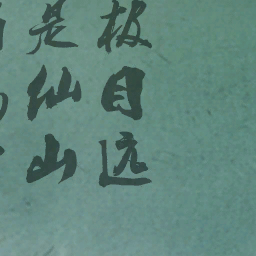 极目远
是仙山